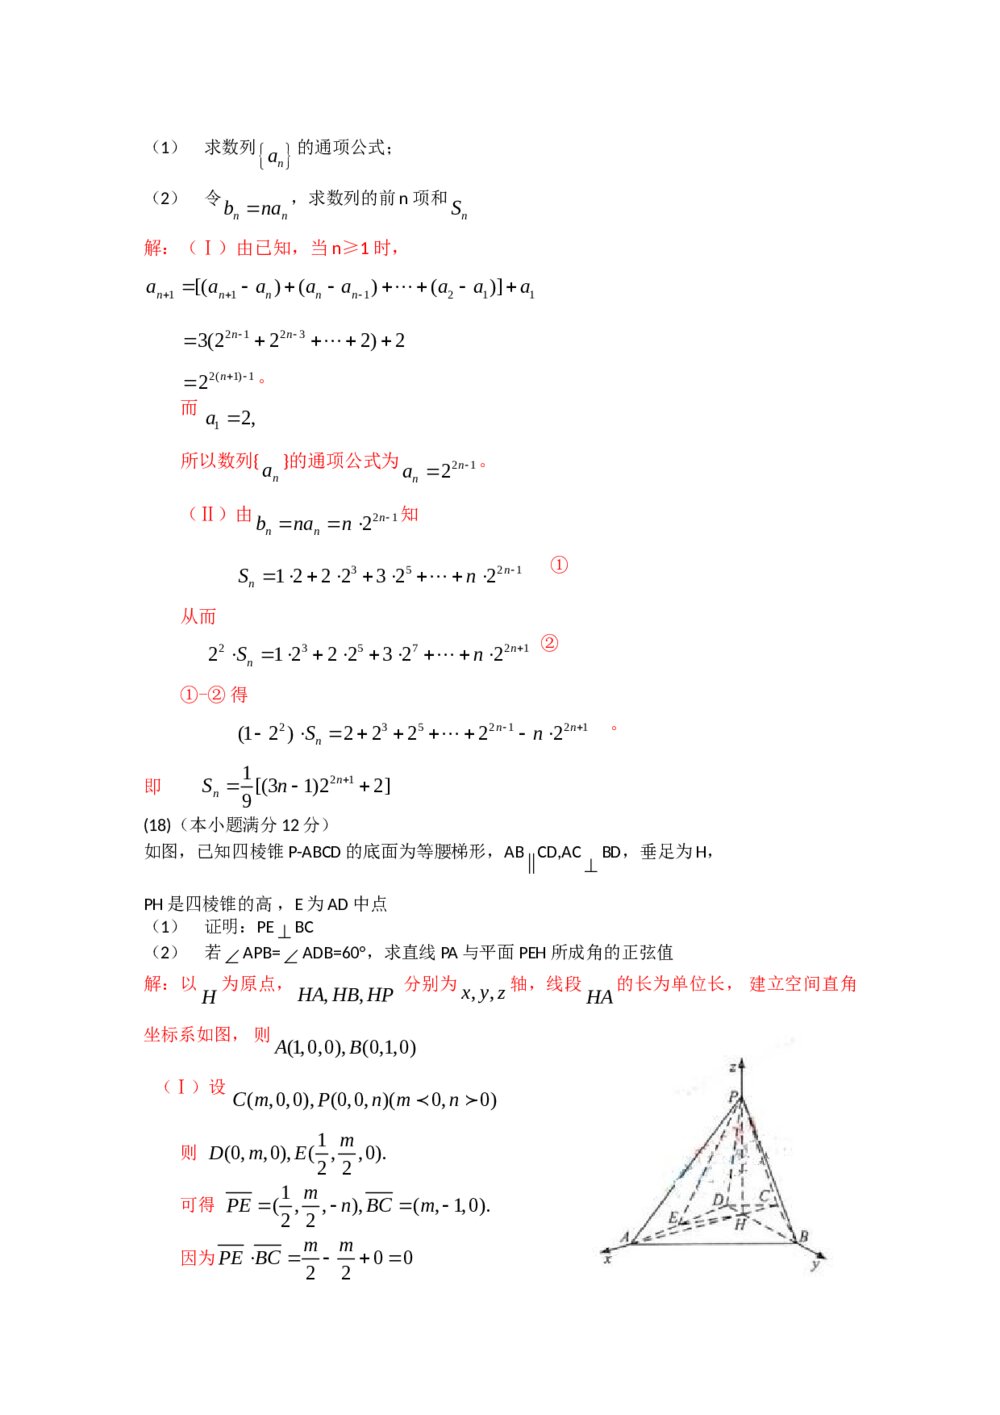 （1） 求数列{aₙ}的通项公式；
（2） 令 bₙ=naₙ，求数列的前 n 项和 Sₙ
解：（Ⅰ）由已知，当 n≥1 时，
a_{n+1}=[(a_{n+1}-a_n)+(a_n-a_{n-1})+⋯+(a_2-a_1)]+a_1
=3(2^{2n-1}+2^{2n-3}+⋯+2)+2
=2^{2(n+1)-1}。
而 a_1=2,
所以数列{a_n}的通项公式为 a_n=2^{2n-1}。
（Ⅱ）由 b_n=na_n=n·2^{2n-1} 知
S_n=1·2+2·2^3+3·2^5+⋯+n·2^{2n-1} ①
从而
2^2·S_n=1·2^3+2·2^5+3·2^7+⋯+n·2^{2n+1} ②
①-② 得
(1-2^2)·S_n=2+2^3+2^5+⋯+2^{2n-1}-n·2^{2n+1} 。
即 S_n=\frac{1}{9}[(3n-1)2^{2n+1}+2]
(18)（本小题满分 12 分）
如图，已知四棱锥 P-ABCD 的底面为等腰梯形，AB∥CD,AC⊥BD，垂足为 H，
PH 是四棱锥的高 ，E 为 AD 中点
（1） 证明：PE⊥BC
（2） 若∠APB=∠ADB=60°，求直线 PA 与平面 PEH 所成角的正弦值
解：以 H 为原点， HA,HB,HP 分别为 x,y,z 轴，线段 HA 的长为单位长， 建立空间直角
坐标系如图， 则 A(1,0,0),B(0,1,0)
（Ⅰ）设 C(m,0,0),P(0,0,n)(m≺0,n≻0)
则 D(0,m,0),E(\frac{1}{2},\frac{m}{2},0).
可得 \overline{PE}=(\frac{1}{2},\frac{m}{2},-n),\overline{BC}=(m,-1,0).
因为 \overline{PE}·\overline{BC}=\frac{m}{2}-\frac{m}{2}+0=0
z
P
D
C
E
H
A
B
x
y